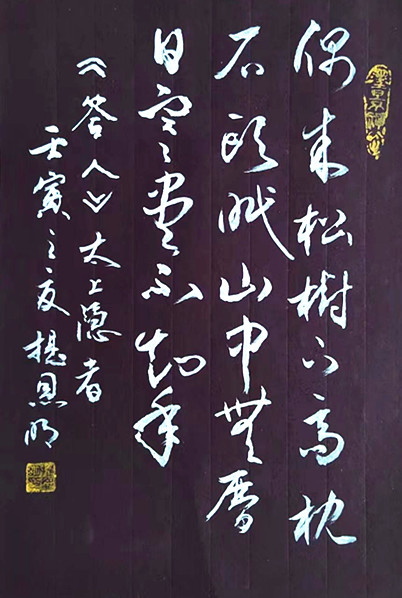 偶来松樹下高枕
石頭眠山中無曆
日寒盡不知年
《答人》太上隐者
壬寅之夏楊恩明